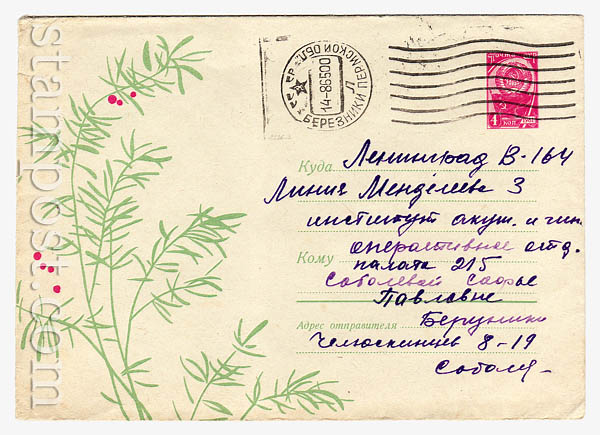 БЕРЕЗНИКИ ПЕРМСКОЙ ОБЛ.
14-8 65 00
4
КОП.
Куда Ленинград В-164
Линия Менделеева 3
институт акуш. и гин.
оперативное отд.
Кому палата 215
Соболевой Софье
Павловне
Адрес отправителя Березники
Челюскинцев 8-19
stamppost.com